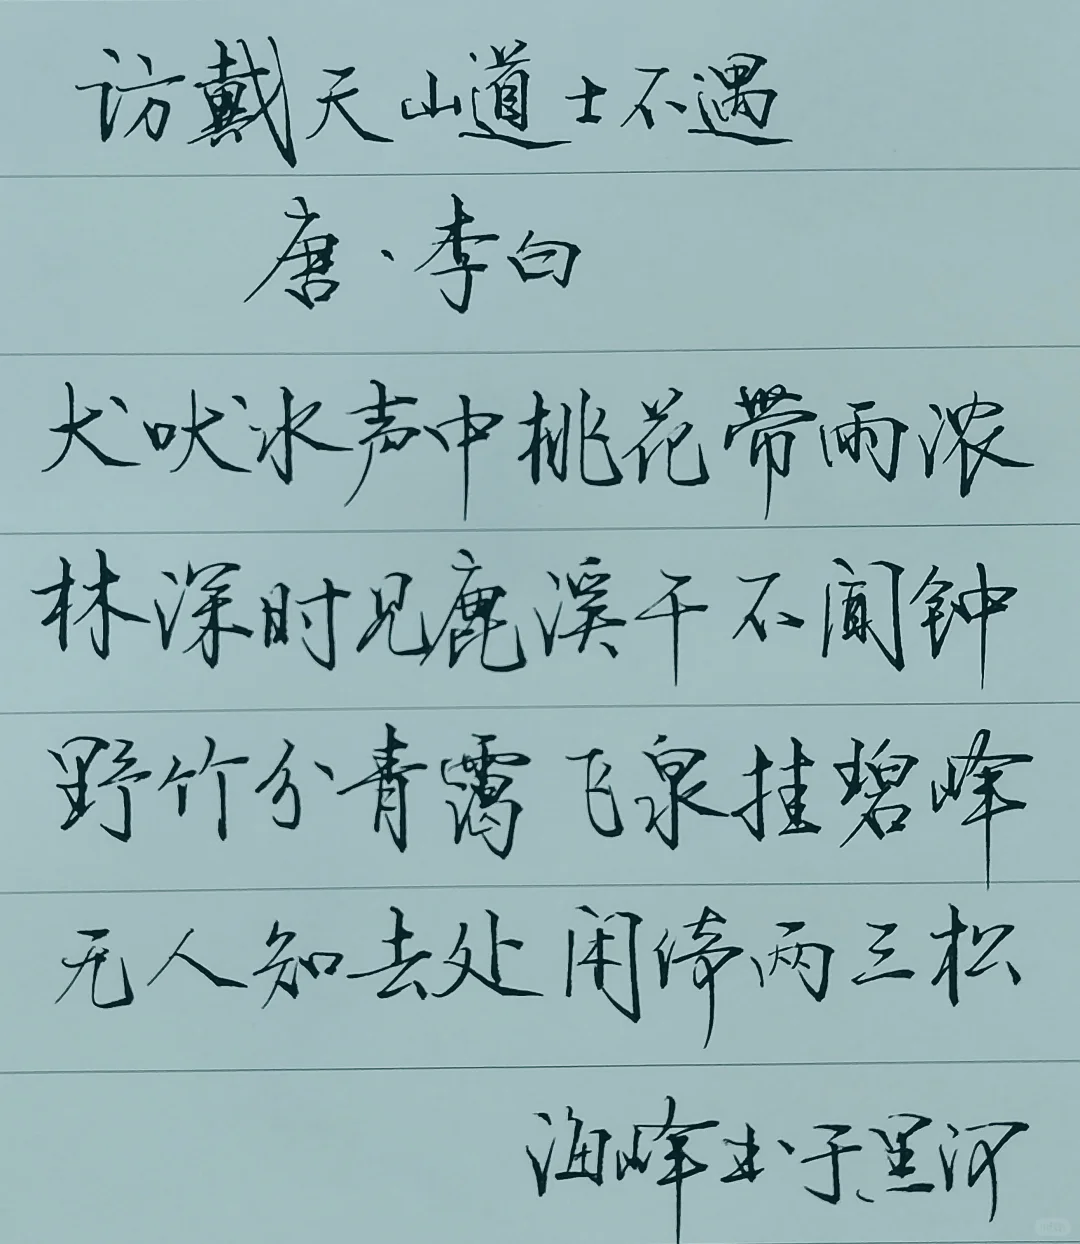 访戴天山道士不遇
唐·李白
犬吠水声中桃花带雨浓
林深时见鹿溪干不闻钟
野竹分青霭飞泉挂碧峰
无人知去处闲倚两三松
海峰书于黑河